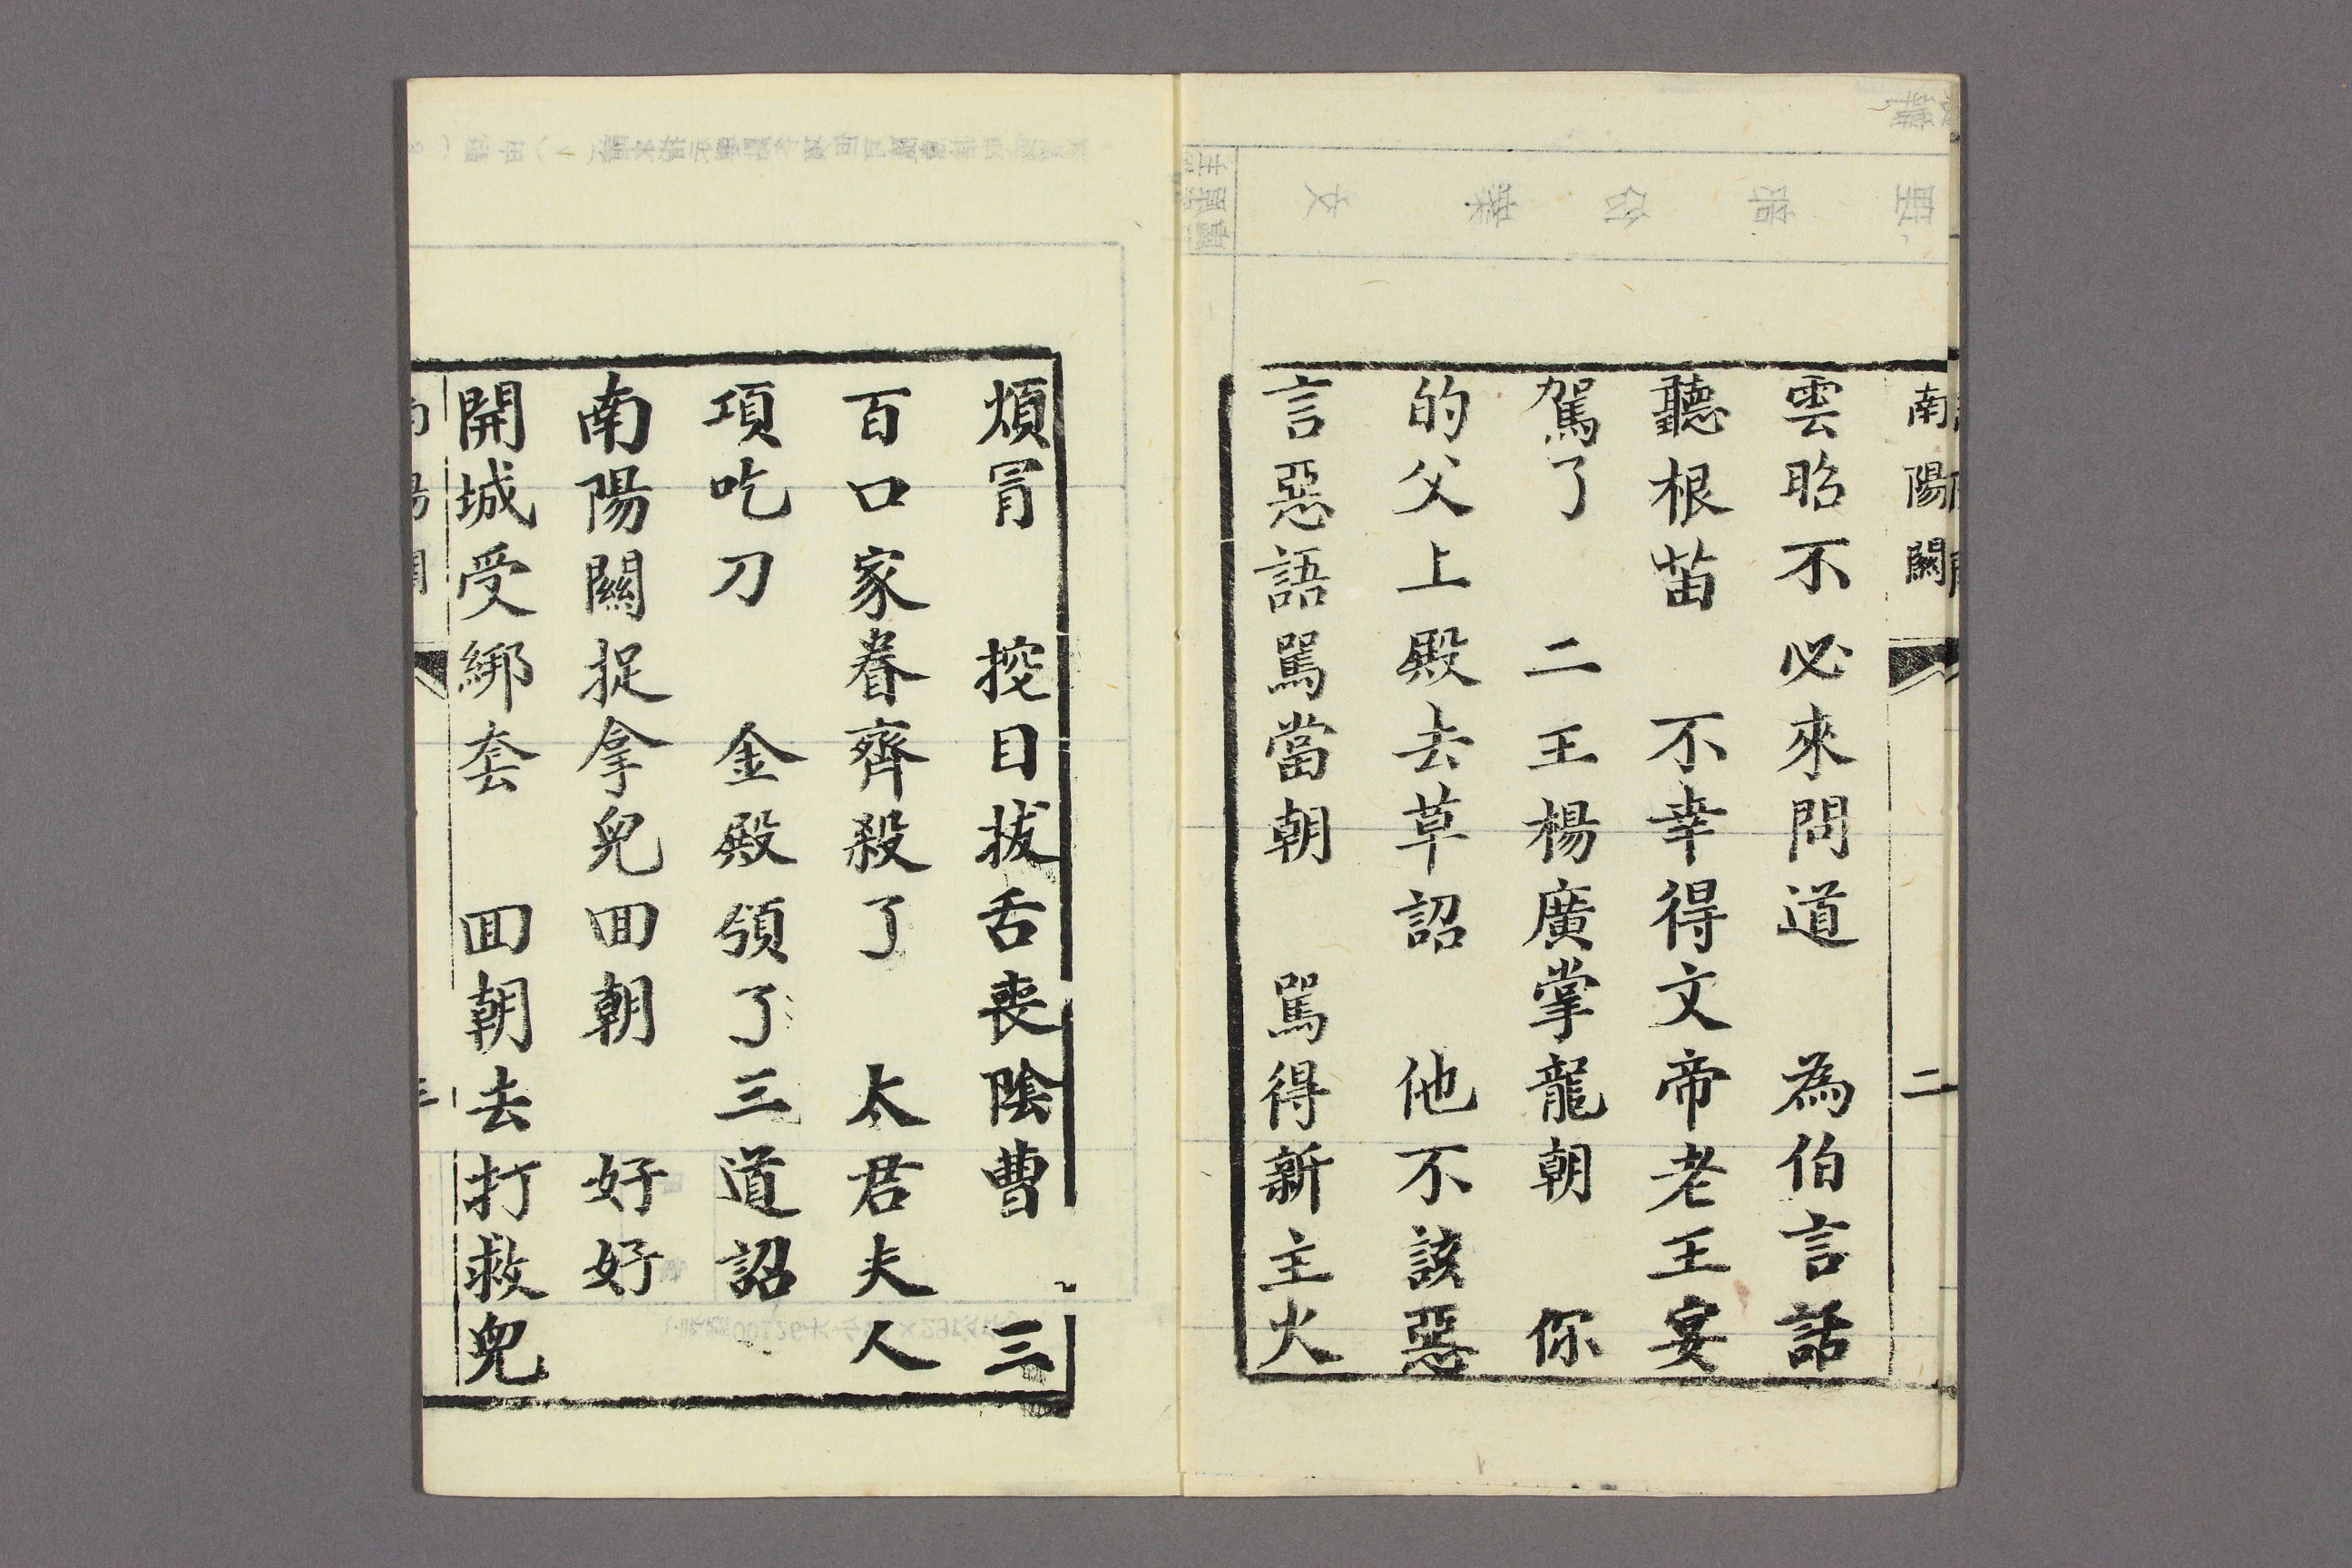 南陽關
二
雲昭不必來問道　為伯言話
聽根苖　不幸得文帝老王宴
駕了　二王楊廣掌龍朝　你
的父上殿去草詔　他不該惡
言惡語罵當朝　罵得新主火
煩冐　挖目拔舌丧陰曹　三
百口家眷齊殺了　太君夫人
項吃刀　金殿領了三道詔
南陽關捉拿兒囬朝　好好
開城受綁套　囬朝去打救兒